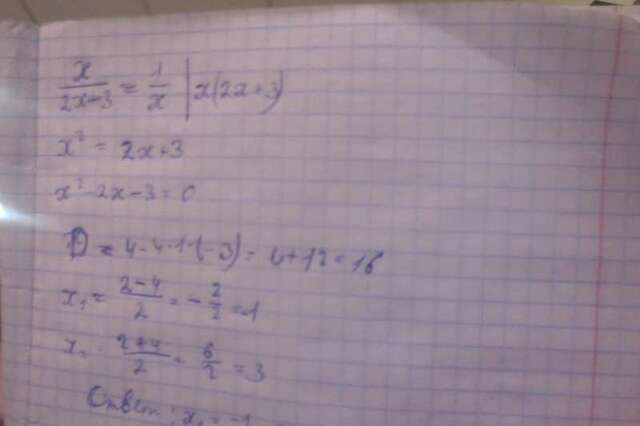 x/(2x+3) = 1/x | x(2x+3)
x² = 2x+3
x²-2x-3=0
D = 4-4·1·(-3) = 4+12=16
x₁ = (2-4)/2 = -2/2 = -1
x₂ = (2+4)/2 = 6/2 = 3
Ответ: x₁ = -1